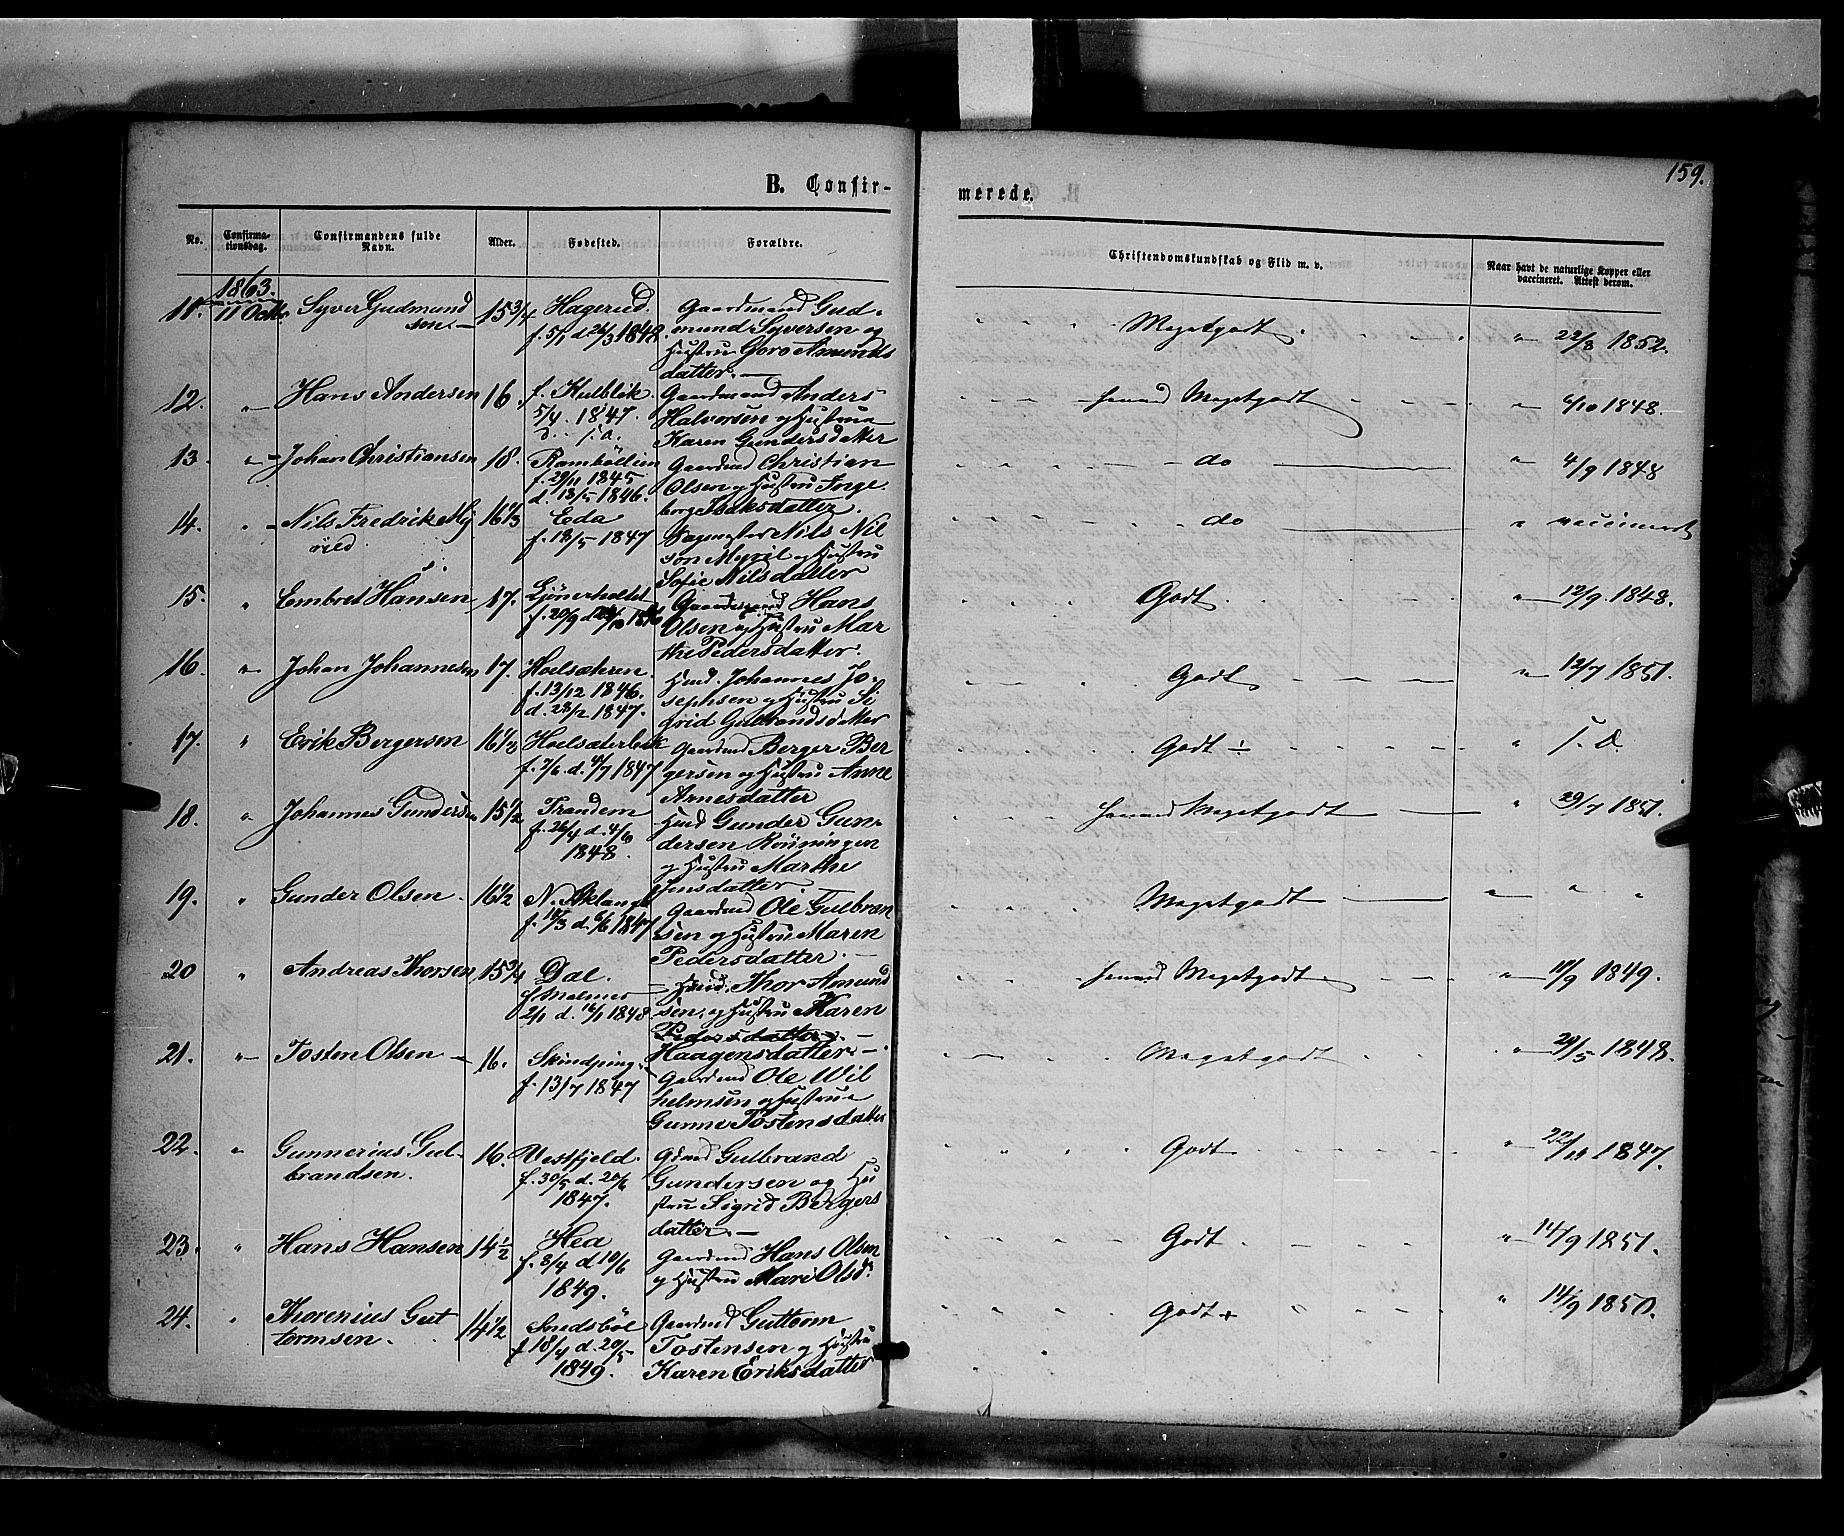 159.
B. Confir-
merede.
No.
Confirma-
tionsdag.
Confirmandens fulde
Navn.
Alder.
Fødested.
Forældre.
Christendomskundskab og Flid m. v.
Naar havt de naturlige Kopper eller
vaccineret. Attest derom.
1863.
11. 11 Octbr. Syver Gudmund
sen.
15 3/4 Hagerud.
f. 5/1 d 26/3 1848.
Gaardmand Gud-
mund Syversen og
Hustru Goro Amunds
datter. —
Megetgodt
" 22/8 1852.
12. " Hans Andersen 16.
f. Kulblik
5/4. 1847.
d. s. a.
Gaardmand Anders
Halvorsen og Hustru
Karen Gundersdatter
henved Megetgodt
" 4/10 1848.
13. " Johan Christiansen 18.
f. 29/11 1845
d. 18/5 1846.
Gaardmd Christian
Olsen og Hustru Inge
borg Isaksdatter.
do
" 4/9 1848
14. " Nils Fredrik My
16 1/3 Eda
f. 18/5 1847
Nils Nil
son Myril og Hustru
Sofie Nilsdatter
do
" vaccineret
15. " Embret Hansen 17.
Gaardmand Hans
Olsen og Hustru Mar
the Pedersdatter.
Godt
" 12/9. 1848.
16. " Johan Johannesen 17. Hoelsæteren.
f. 13/12 1846.
d. 28/2 1847.
Hmd. Johannes Jo-
sephsen og Hustru Si
grid Gulbrandsdatter
Godt
" 12/7 1851.
17. " Erik Bergersen 16 1/3 Hoelsæterbek
f. 2/6. d. 4/7 1847
Gaardmd Berger Ber
gersen og Hustru Anne
Arnesdatter
Godt ÷
"
18. " Johannes Gundersen 15 1/2 Trandem
f. 26/4 d. 4/6
1848.
Hmd Gunder Gun-
dersen Rönningen
og Hustru Marthe
Jensdatter.
henved Megetgodt
" 29/7 1851.
19. " Gunder Olsen. 16 1/2 N. Aklangb
f. 14/3 d. 6/6 1847
Gaardmd Ole Gulbran
sen og Hustru Maren
Pedersdatter. —
Megetgodt
" " "
20 " Andreas Thorsen 15 3/4 Dal.
f Malmer
2/1 d. 16/1 1848.
Hmd. Thor Amund
sen, og Hustru Karen
Pedersdatter. —
Haagensdatter. —
henved Megetgodt
" 11/9 1849.
21. " Tosten Olsen — 16. Skindping
f. 13/7 1847
Gaardmd Ole Wil
helmsen og Hustru
Gunnor Tostensdatter
Megetgodt
" 29/5 1848.
22. " Gunnerius Gul-
brandsen.
16. Vestfjeld.
f. 30/5 d. 20/6
1847.
Gdmd Gulbrand
Gundersen og Hu
stru Sigrid Bergers
datter. —
Godt
" 22/10 1847.
23. " Hans Hansen 14 1/2 Hea
f. 8/4 d 10/6
1849.
Gaardmd Hans Olsen
og Hustru Mari Olsdr.
Godt
" 14/9 1851.
24. " Thorenius Gut
tormsen.
14 1/2 Sudsböl
f 18/4 d. 20/5
1849.
Gaardmd Guttorm
Tostensen og Hustru
Karen Eriksdatter
Godt +
" 14/9 1850.